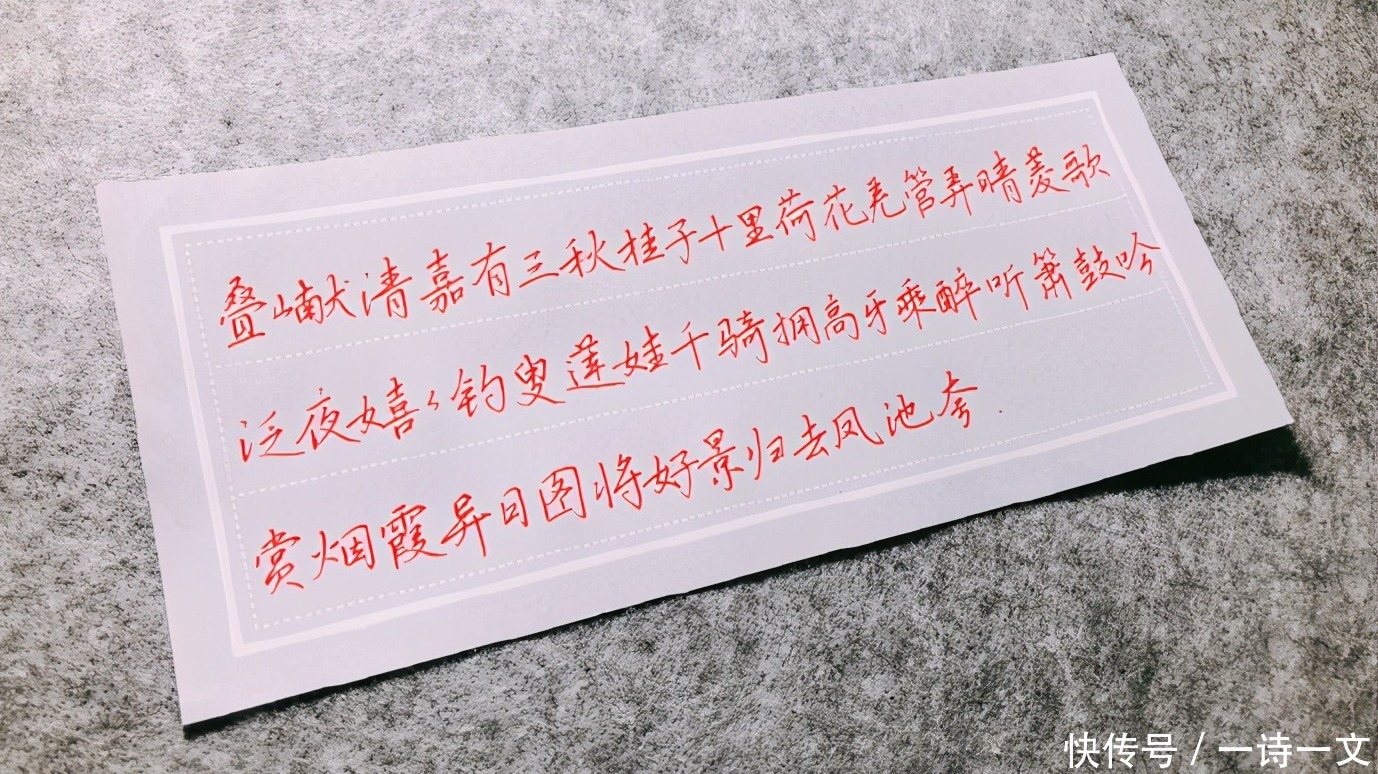 叠巘献清嘉有三秋桂子十里荷花羌管弄晴菱歌
泛夜嬉〻钓叟莲娃千骑拥高牙乘醉听箫鼓吟
赏烟霞异日图将好景归去凤池夸.
快传号 / 一诗一文